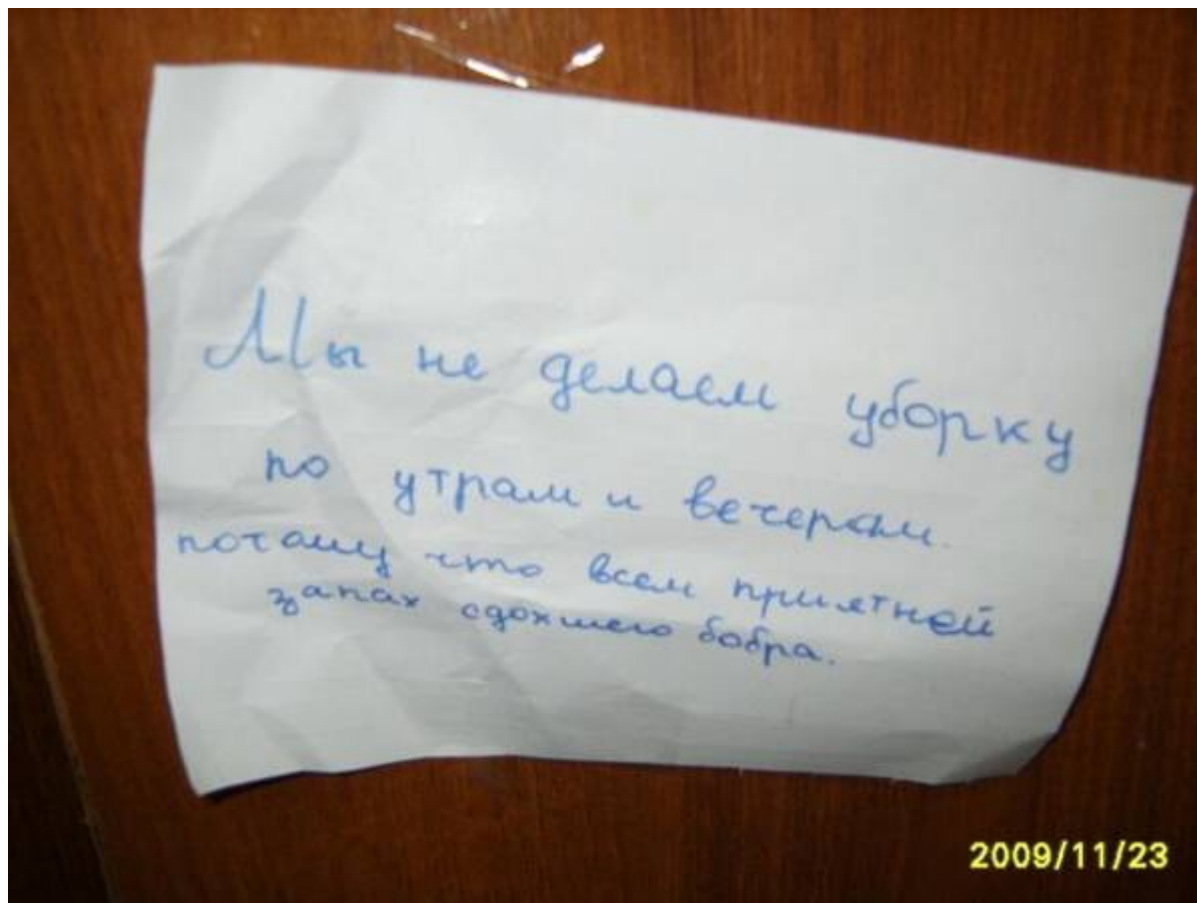 Мы не делаем уборку
по утрам и вечерам.
потому что всем приятней
запах сдохшего бобра.
2009/11/23